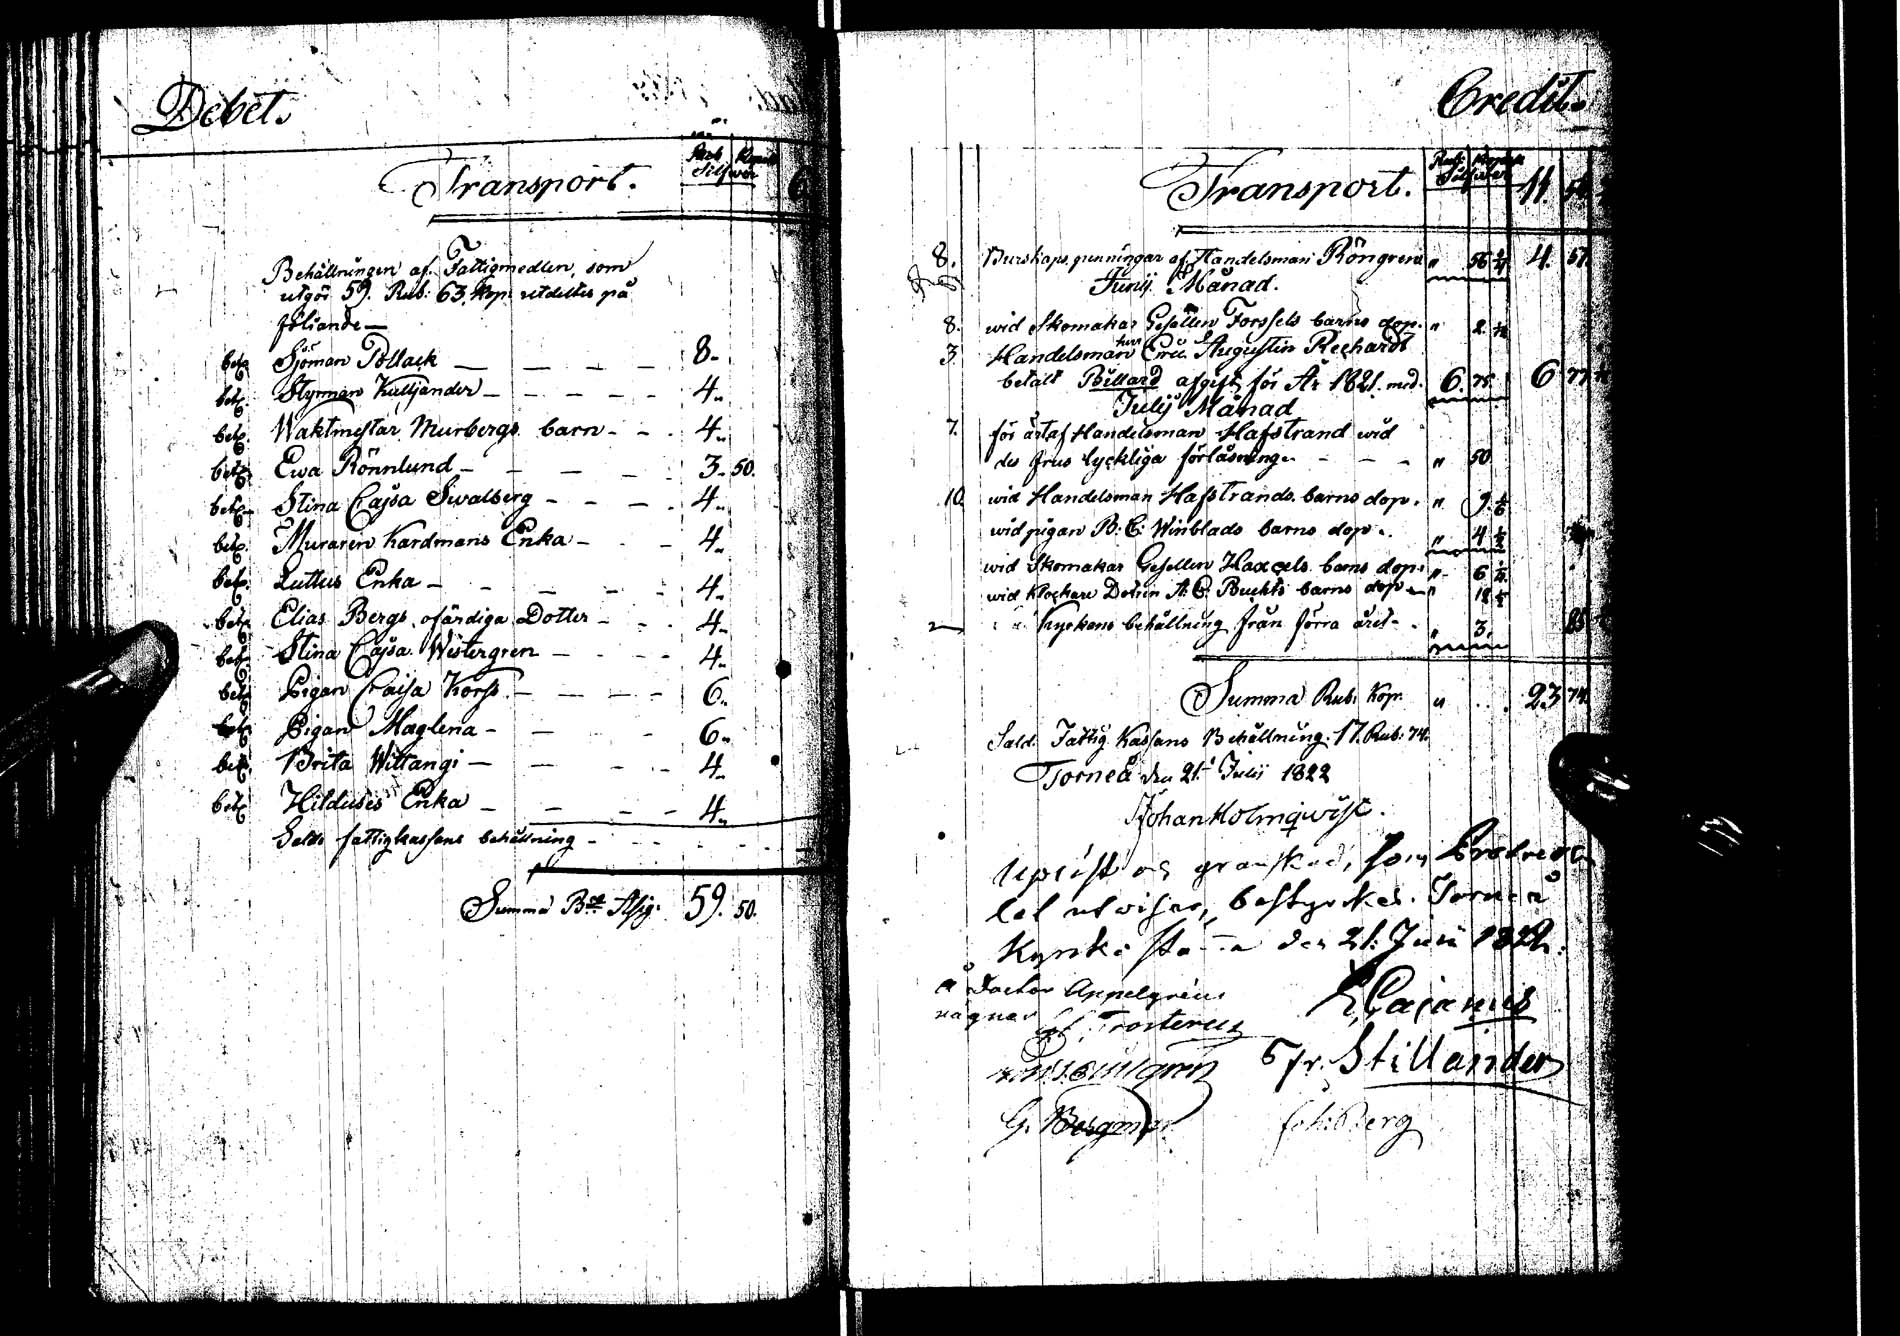 Debet.
Rub Kopek
Silfwer
Transport. 6
Behållningen af Fattigmedlen, som
utgör 59. Rub: 63. Kop: utdeltes på
följande —
bet. Sjöman Pollack 8.
bet. Styrman Kulljander 4.
bet. Waktmestar Murbergs barn 4.
bet. Ewa Rönnlund 3. 50.
bet. Stina Cajsa Swalberg 4.
bet. Muraren Kardmans Enka 4.
bet. Luttus Enka 4.
bet. Elias Bergs ofärdiga Dotter 4.
bet. Stina Cajsa Westergren 4.
bet. Pigan Caisa Korss 6.
bet. Pigan Maglena 6.
bet. Brita Wittangi 4.
bet. Hilduses Enka 4.
Saldo fattigkassans behållning
Summa Bco Assig: 59. 50.
Credit.
Rub: Kopek
Silfwer
Transport. 11.
8. Burskaps penningar af Handelsman Röngren " 56 1/4 4. 57.
Junij Månad.
8. wid Skomakar Gesällen Forssels barns dop. " 2
3. Handelsman herr Eric Augustin Rechardt
betalt Billard afgift för År 1821. med. 6. 75. 6 77
Julij Månad
7. för ärtaf Handelsman Hafstrand wid
des frus lyckliga förlåsning " 50
10. wid Handelsman Hafstrands barns dop. " 9.
wid pigan B: C: Winblads barns dop. " 4 1/2
wid Skomakar Gesellen barns dop " 6
wid klockare A: C: barns dop " 18
Kyrkans behållning från förra året " 3. 83
Summa Rub. Kop. " 23 74.
Sald. Fattig Kassans Behållning 17. Rub: 74.
Torneå den 21. Julij 1822
Johan Holmqwist.
Uplist och granskad, som Protocol
let utwiser, bestyrkes. Torneå
Kyrko stamma den 21: Juli 1822.
å Doctor Appelgréns
wägnar
E Cajanus
Stillander
G. Bergman
Joh: Berg